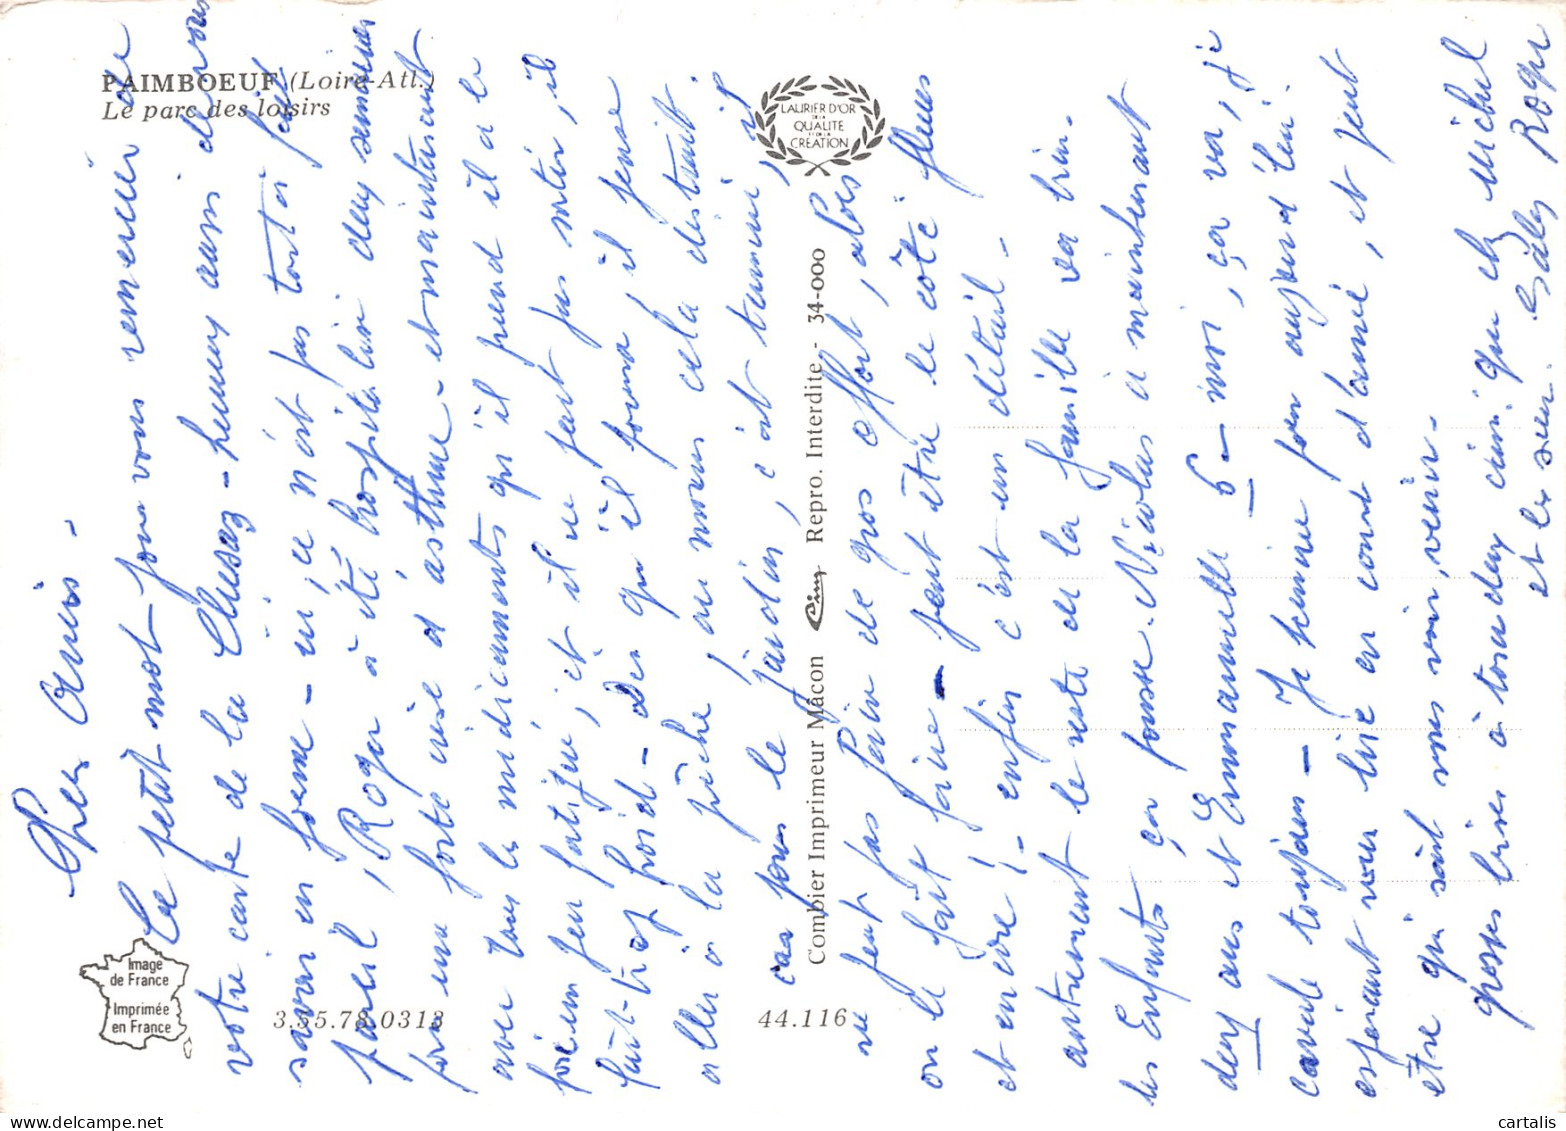 PAIMBOEUF (Loire-Atl.)
Le parc des loisirs
LAURIER D'OR
DE LA
QUALITE
ET DE LA
CREATION
Image
de France
Imprimée
en France
3.55.78.0313
44.116
Combier Imprimeur Mâcon Repro. Interdite - 34-000
Chers Amis -
Ce petit mot pour vous remercier de
votre carte de la Clusaz - heureux aussi de vous
savoir en forme - ici, ce n'est pas tout à fait
pareil, Roger à été hospitalisé deux semaines
pour une forte crise d'asthme - et maintenant
avec tous les médicaments qu'il prend il a le
fatigué, et il ne faut pas sortir, il
fait trop froid - Dès qu'il pourra, il pense
aller à la pêche, au moins cela détruit
pas le jardin, c'est terminé, il
ne peut pas faire de gros effort, alors
on le fait faire - peut être le côté
et encore ! - enfin c'est un détail -
autrement le reste de la famille va bien -
les Enfants, ça pousse - Nicolas à maintenant
deux ans et Emmanuelle 6 - moi, ça va, je
cavale toujours - Je termine pour aujourd'hui -
espérant vous lire en court d'année, et peut
être qui sait vous voir venir -
grosses bises à tous deux ainsi que chez Michel
et les siens. Gaby Roger